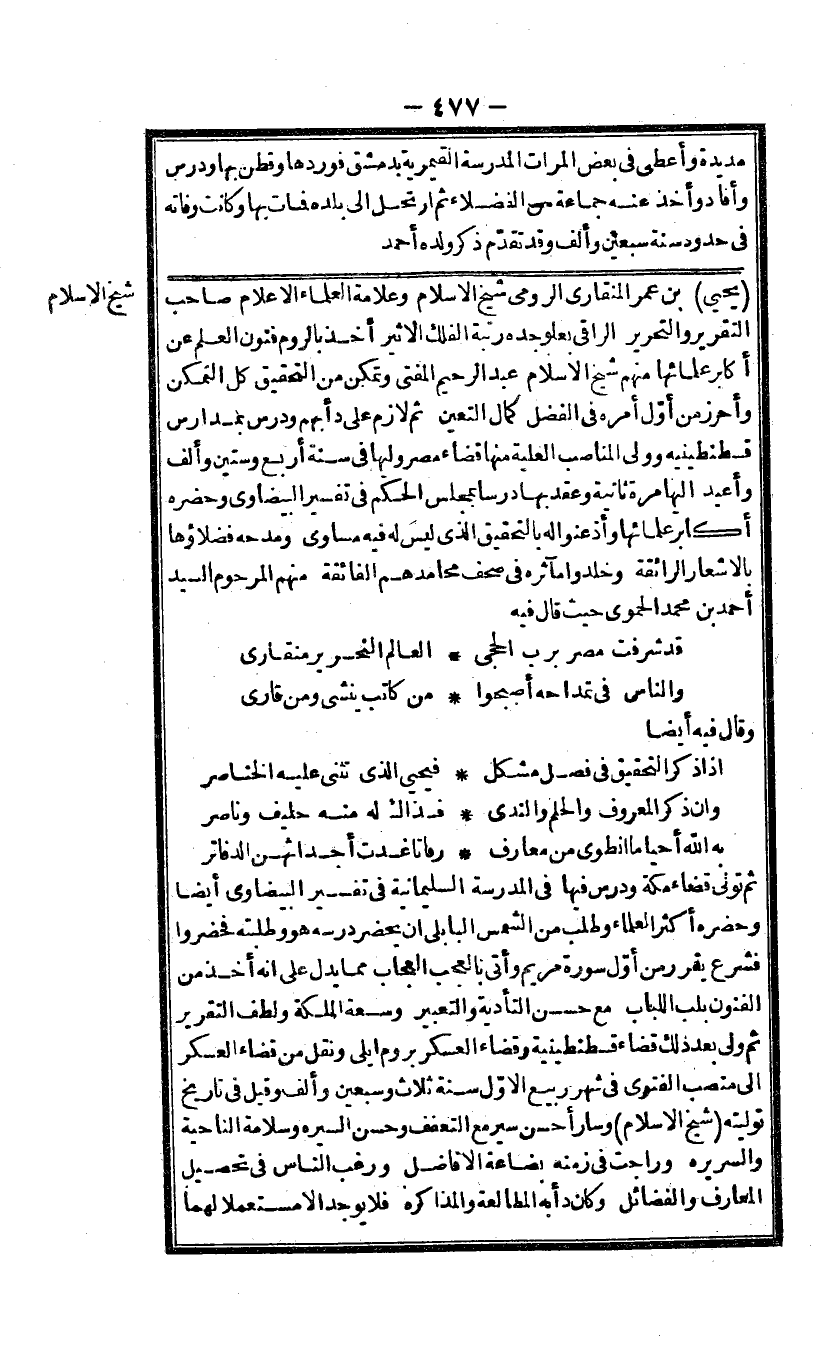 — ٤٧٧ —
مديدة وأعطى فى بعض المرات المدرسة القيمرية بدمشق فوردها وقطن بها ودرس
وأفاد وأخذ عنه جماعة من الفضلاء ثم ارتحل الى بلده فمات بها وكانت وفاته
فى حدود سنة سبعين وألف وقد تقدّم ذكر ولده أحمد
شيخ الاسلام
(يحيى) بن عمر المنقارى الرومى شيخ الاسلام وعلامة العلماء الاعلام صاحب
التقرير والتحرير الراقى بعلو جده رتبة الفلك الاثير أخذ بالروم فنون العلم عن
أكابر علمائها منهم شيخ الاسلام عبد الرحيم المفتى وتمكن من التحقيق كل التمكن
وأحرز من أوّل أمره فى الفضل كمال التعين ثم لازم على دأبهم ودرس بمدارس
قسطنطينيه وولى المناصب العلية منها قضاء مصر ولها فى سنة أربع وستين وألف
وأعيد الها مرة ثانية وعقد بها درسا بمجلس الحكم فى تفسير البيضاوى وحضره
أكابر علمائها وأذعنوا له بالتحقيق الذى ليس له فيه مساوى ومدحه فضلاؤها
بالاشعار الرائقة وخلدوا مآثره فى صحف محامدهم الفائقة منهم المرحوم السيد
أحمد بن محمد الحموى حيث قال فيه
قد شرفت مصر برب الحجى * العالم النحرير منقارى
والناس فى تمداحه أصبحوا * من كاتب ينشى ومن قارى
وقال فيه أيضا
اذا ذكر التحقيق فى فصل مشكل * فيحيى الذى تثنى عليه الخناصر
وان ذكر المعروف والحلم والندى * فذاك له منه حليف وناصر
به الله أحيا ما انطوى من معارف * رفاتا غدت أجداثهن الدفاتر
ثم تولى قضاء مكة ودرس فيها فى المدرسة السليمانية فى تفسير البيضاوى أيضا
وحضره أكثر العلماء وطلب من الشمس البابلى ان يحضر درسه هو وطلبته فحضروا
فشرع يقرر من أوّل سورة مريم وأتى بالعجب العجاب مما يدل على انه أخذ من
الفنون بلب اللباب مع حسن التأدية والتعبير وسعة الملكة ولطف التقرير
ثم ولى بعد ذلك قضاء قسطنطينية وقضاء العسكر بروم ايلى ونقل من قضاء العسكر
الى منصب الفتوى فى شهر ربيع الاوّل سنة ثلاث وسبعين وألف وقيل فى تاريخ
توليته (شيخ الاسلام) وسار أحسن سير مع التعفف وحسن السيره وسلامة الناحية
والسريره وراجت فى زمنه بضاعة الافاضل ورغب الناس فى تحصيل
المعارف والفضائل وكان دأبه المطالعة والمذاكره فلا يوجد الا مستعملا لهما